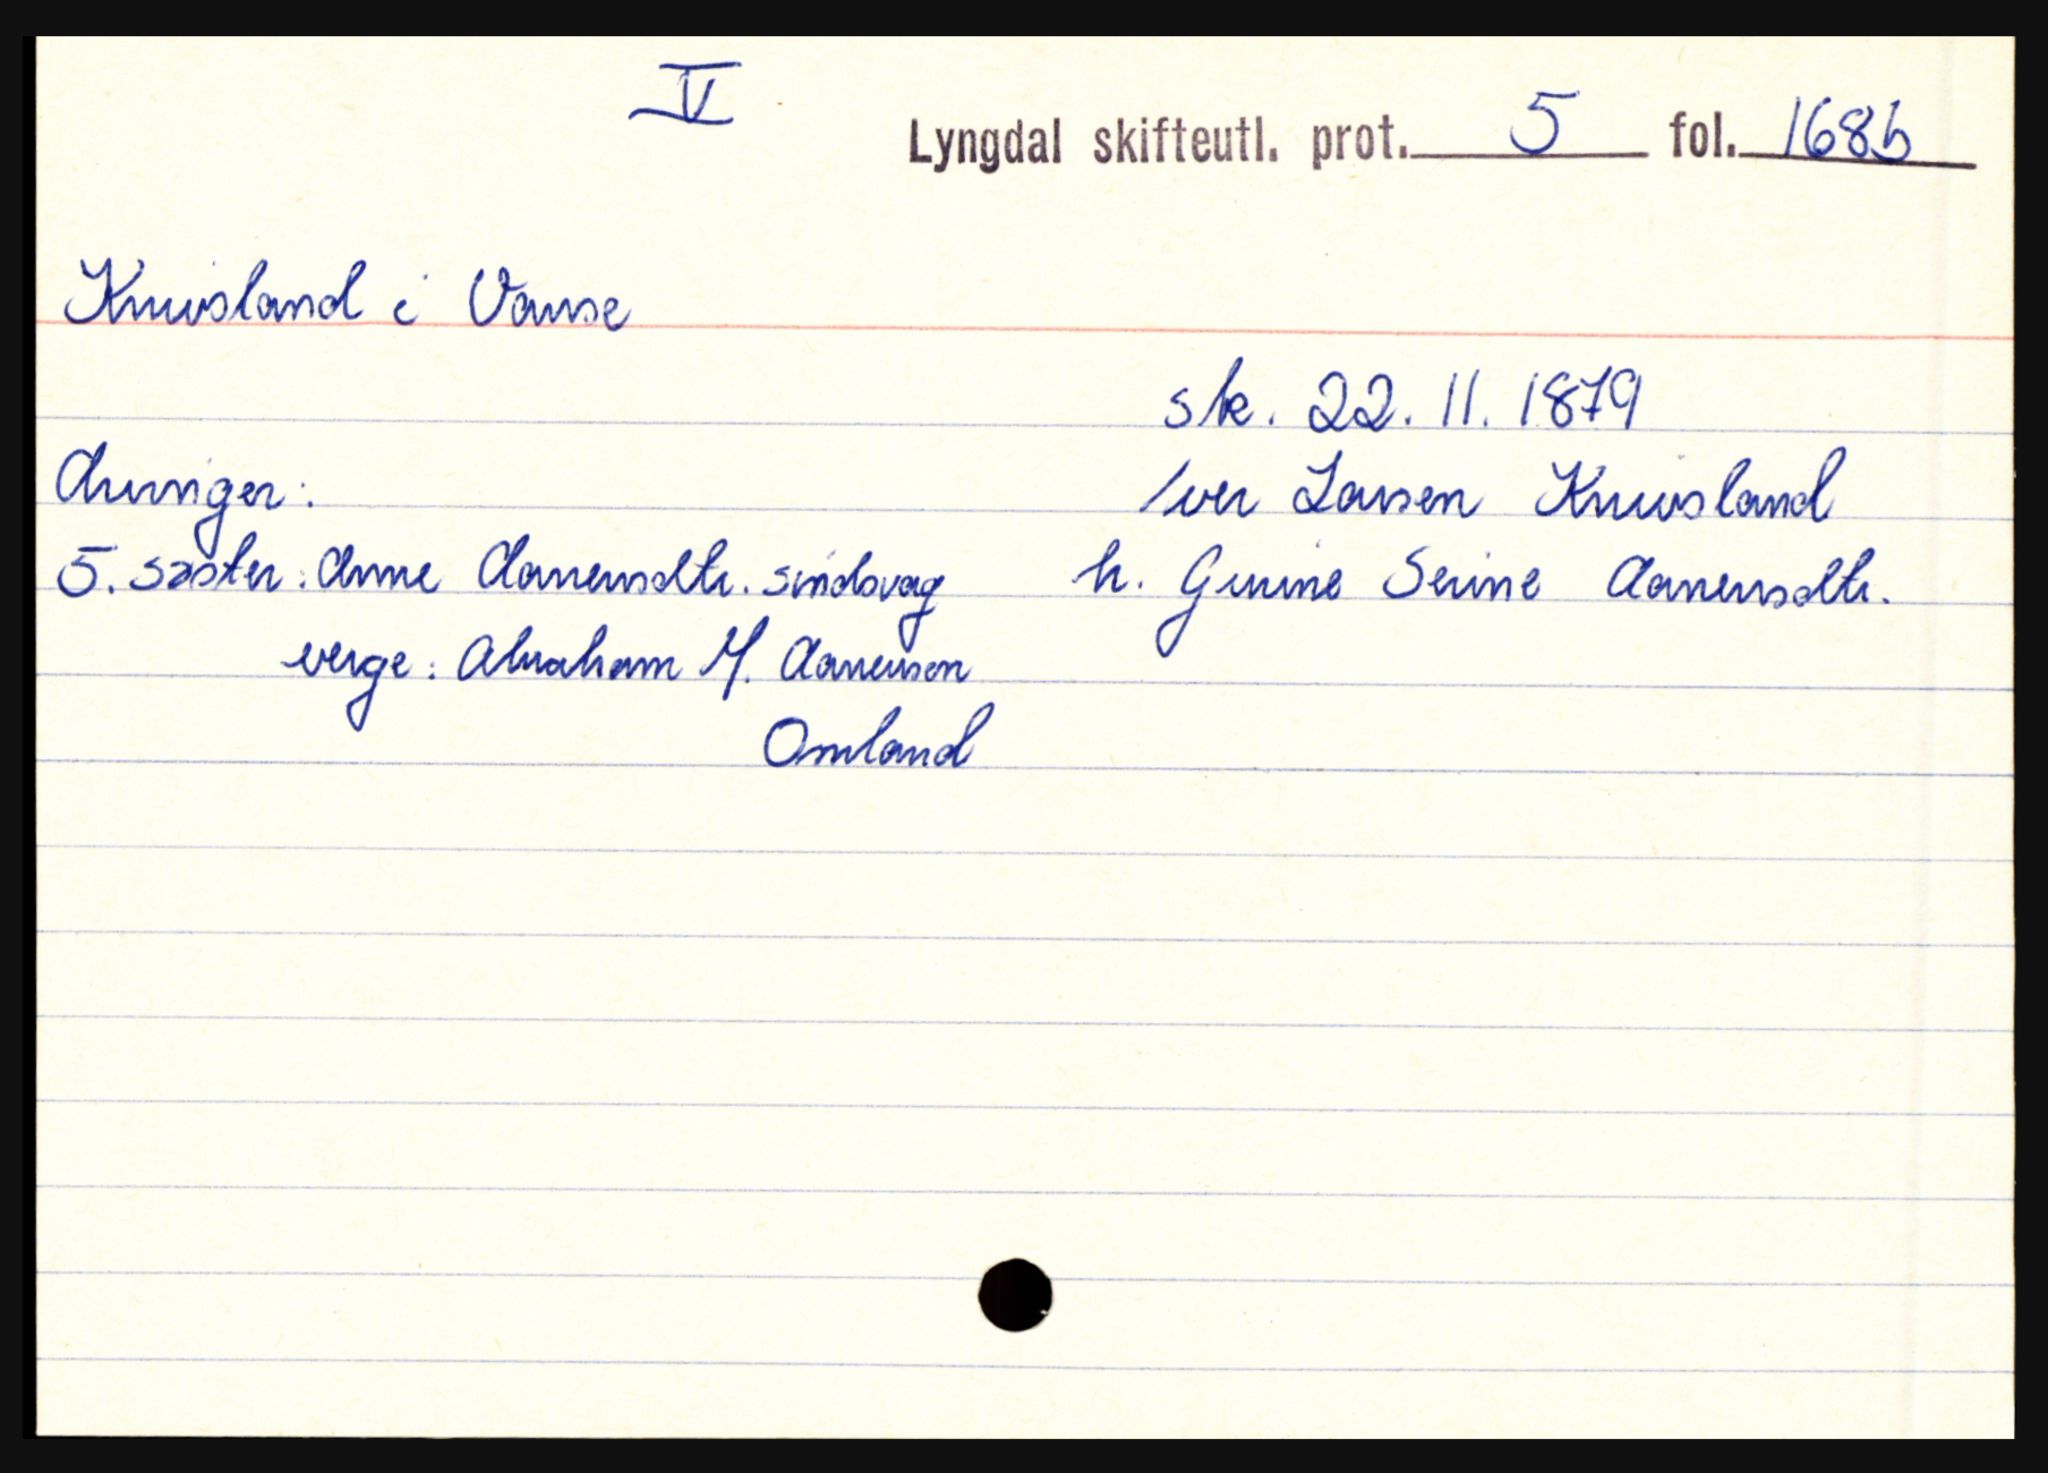 V
Lyngdal skifteutl. prot. 5 fol. 168b
Knivsland i Vanse
sk. 22.11.1879
Arvinger:
Iver Larsen Knivsland
5. søster: Anne Aanensdtr. sindsvag
h. Gunine Serine Aanensdtr.
verge: Abraham M. Aanensen
Omland